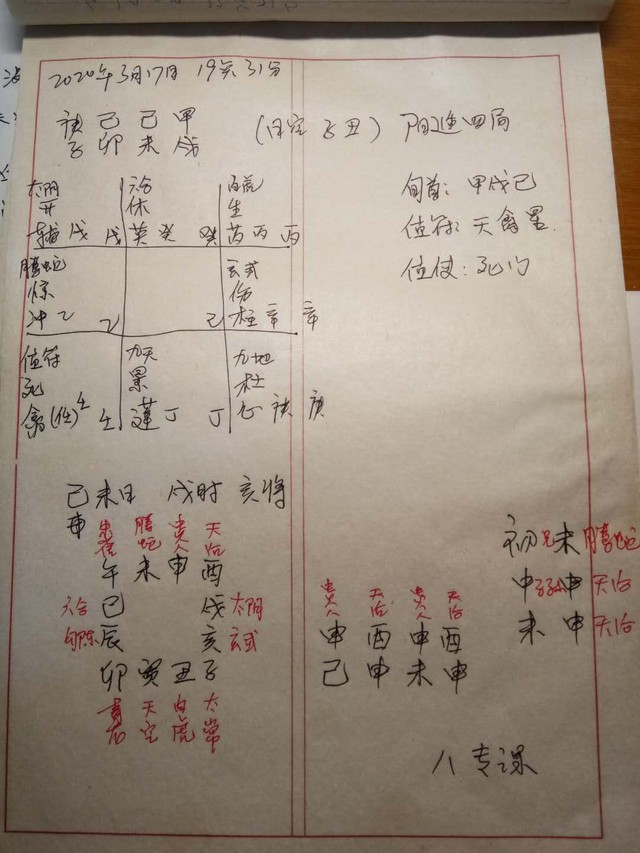 2020年3月17日 19点31分
庚 己 己 甲
子 卯 未 戌
(日空 子丑) 阳遁四局
旬首: 甲戌己
值符: 天禽星
值使: 死门
太阴 六合 白虎
开 休 生
辅 戊 戊 英 癸 癸 芮 丙 丙
腾蛇 玄武
惊 伤
冲 乙 乙 己 柱 辛 辛
值符 九天 九地
死 景 杜
禽(任) 壬 壬 蓬 丁 丁 心 庚 庚
己未日 戌时 亥将
申
朱雀 腾蛇 贵人 天后
午 未 申 酉
六合 巳 戌 太阴
勾陈 辰 亥 玄武
卯 寅 丑 子
青龙 天空 白虎 太常
贵人 天后 贵人 天后
申 酉 申 酉
己 申 未 申
初 兄 未 腾蛇
中 子孙 申 天后
末 申 天后
八专课